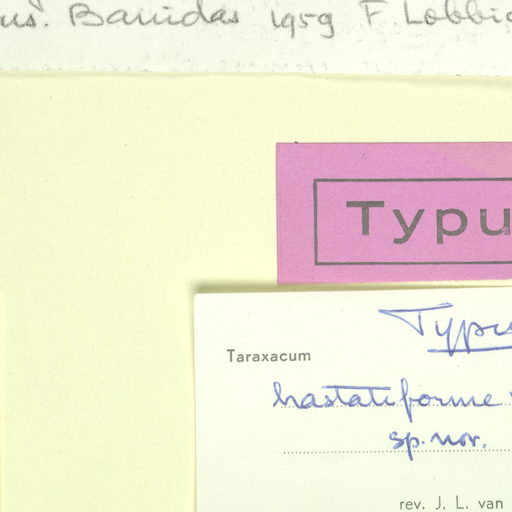 us. Banidas 1959 F. Lobbic
Typu
Typu
Taraxacum
hastatiforme
sp. nov.
rev. J. L. van